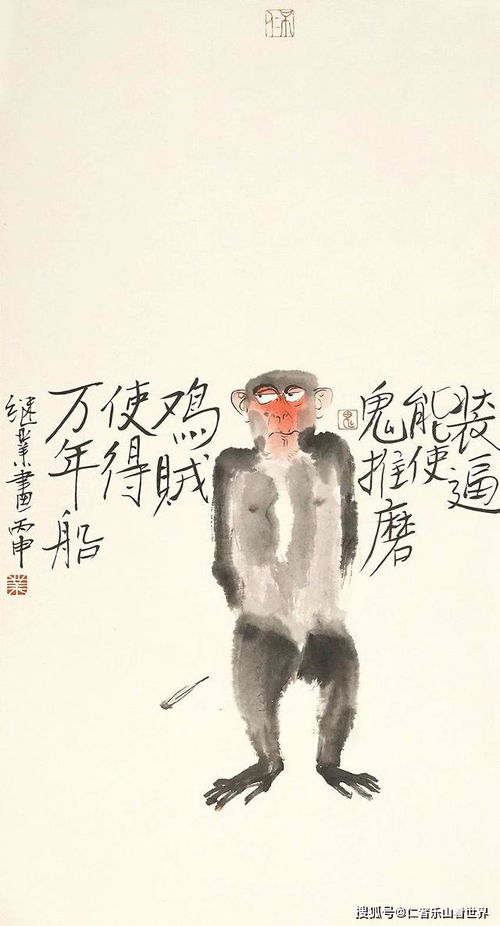 装逼
能使
鬼推磨
鸡贼
使得
万年船
继業畫丙申
業
搜狐号@仁者乐山看世界